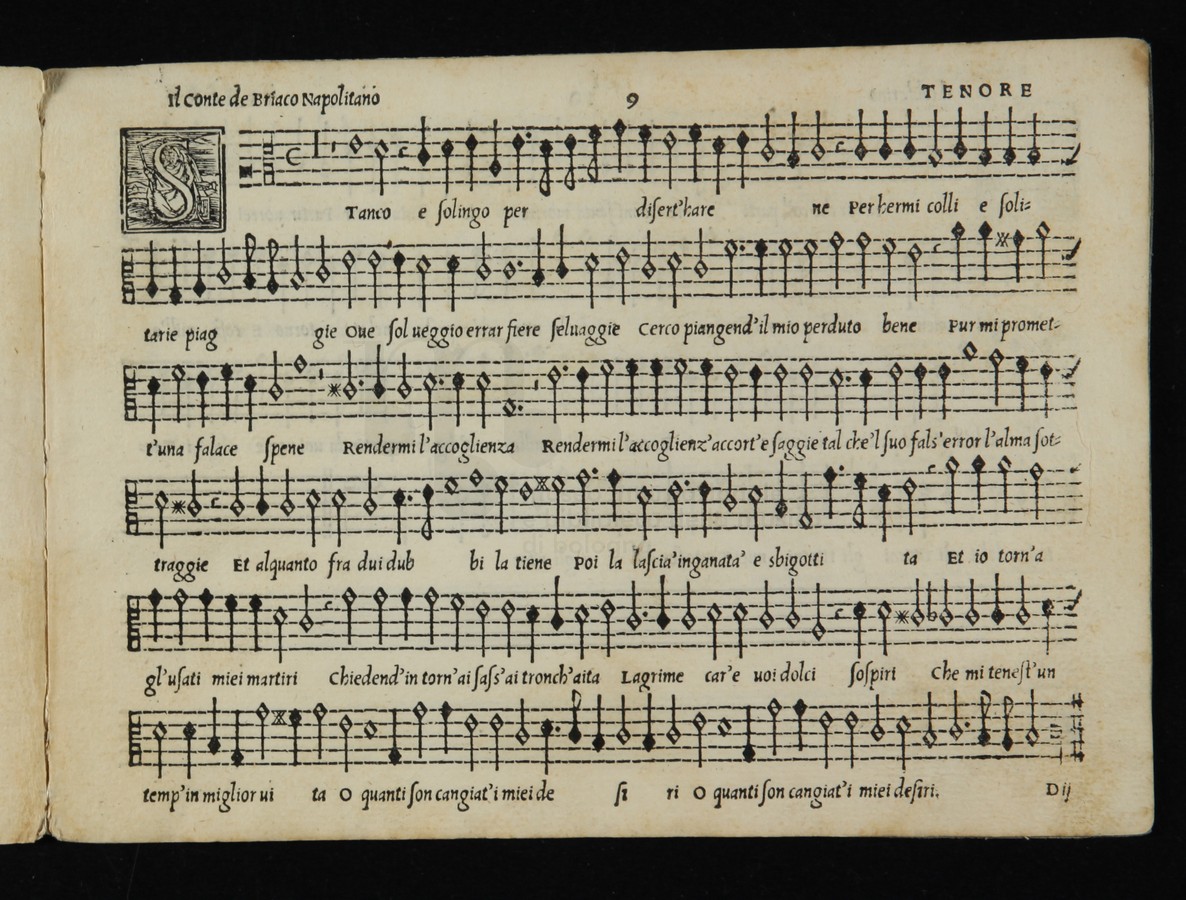 Il Conte de Briaco Napolitano 9 TENORE
S Tanco e solingo per disert'hare ne Per hermi colli e soli=
tarie piag gie Oue sol ueggio errar fiere seluaggie Cerco piangend'il mio perduto bene Pur mi promet=
t'una falace spene Rendermi l'accoglienza Rendermi l'accoglienz'accort'e saggie tal che'l suo fals'error l'alma sot=
traggie Et alquanto fra dui dub bi la tiene Poi la lascia'inganata' e sbigotti ta Et io torn'a
gl'usati miei martiri Chiedend'in torn'ai sass'ai tronch'aita Lagrime car'e uoi dolci sospiri Che mi tenest'un
temp'in miglior ui ta O quanti son cangiat'i miei de si ri O quanti son cangiat'i miei desiri.
D ij